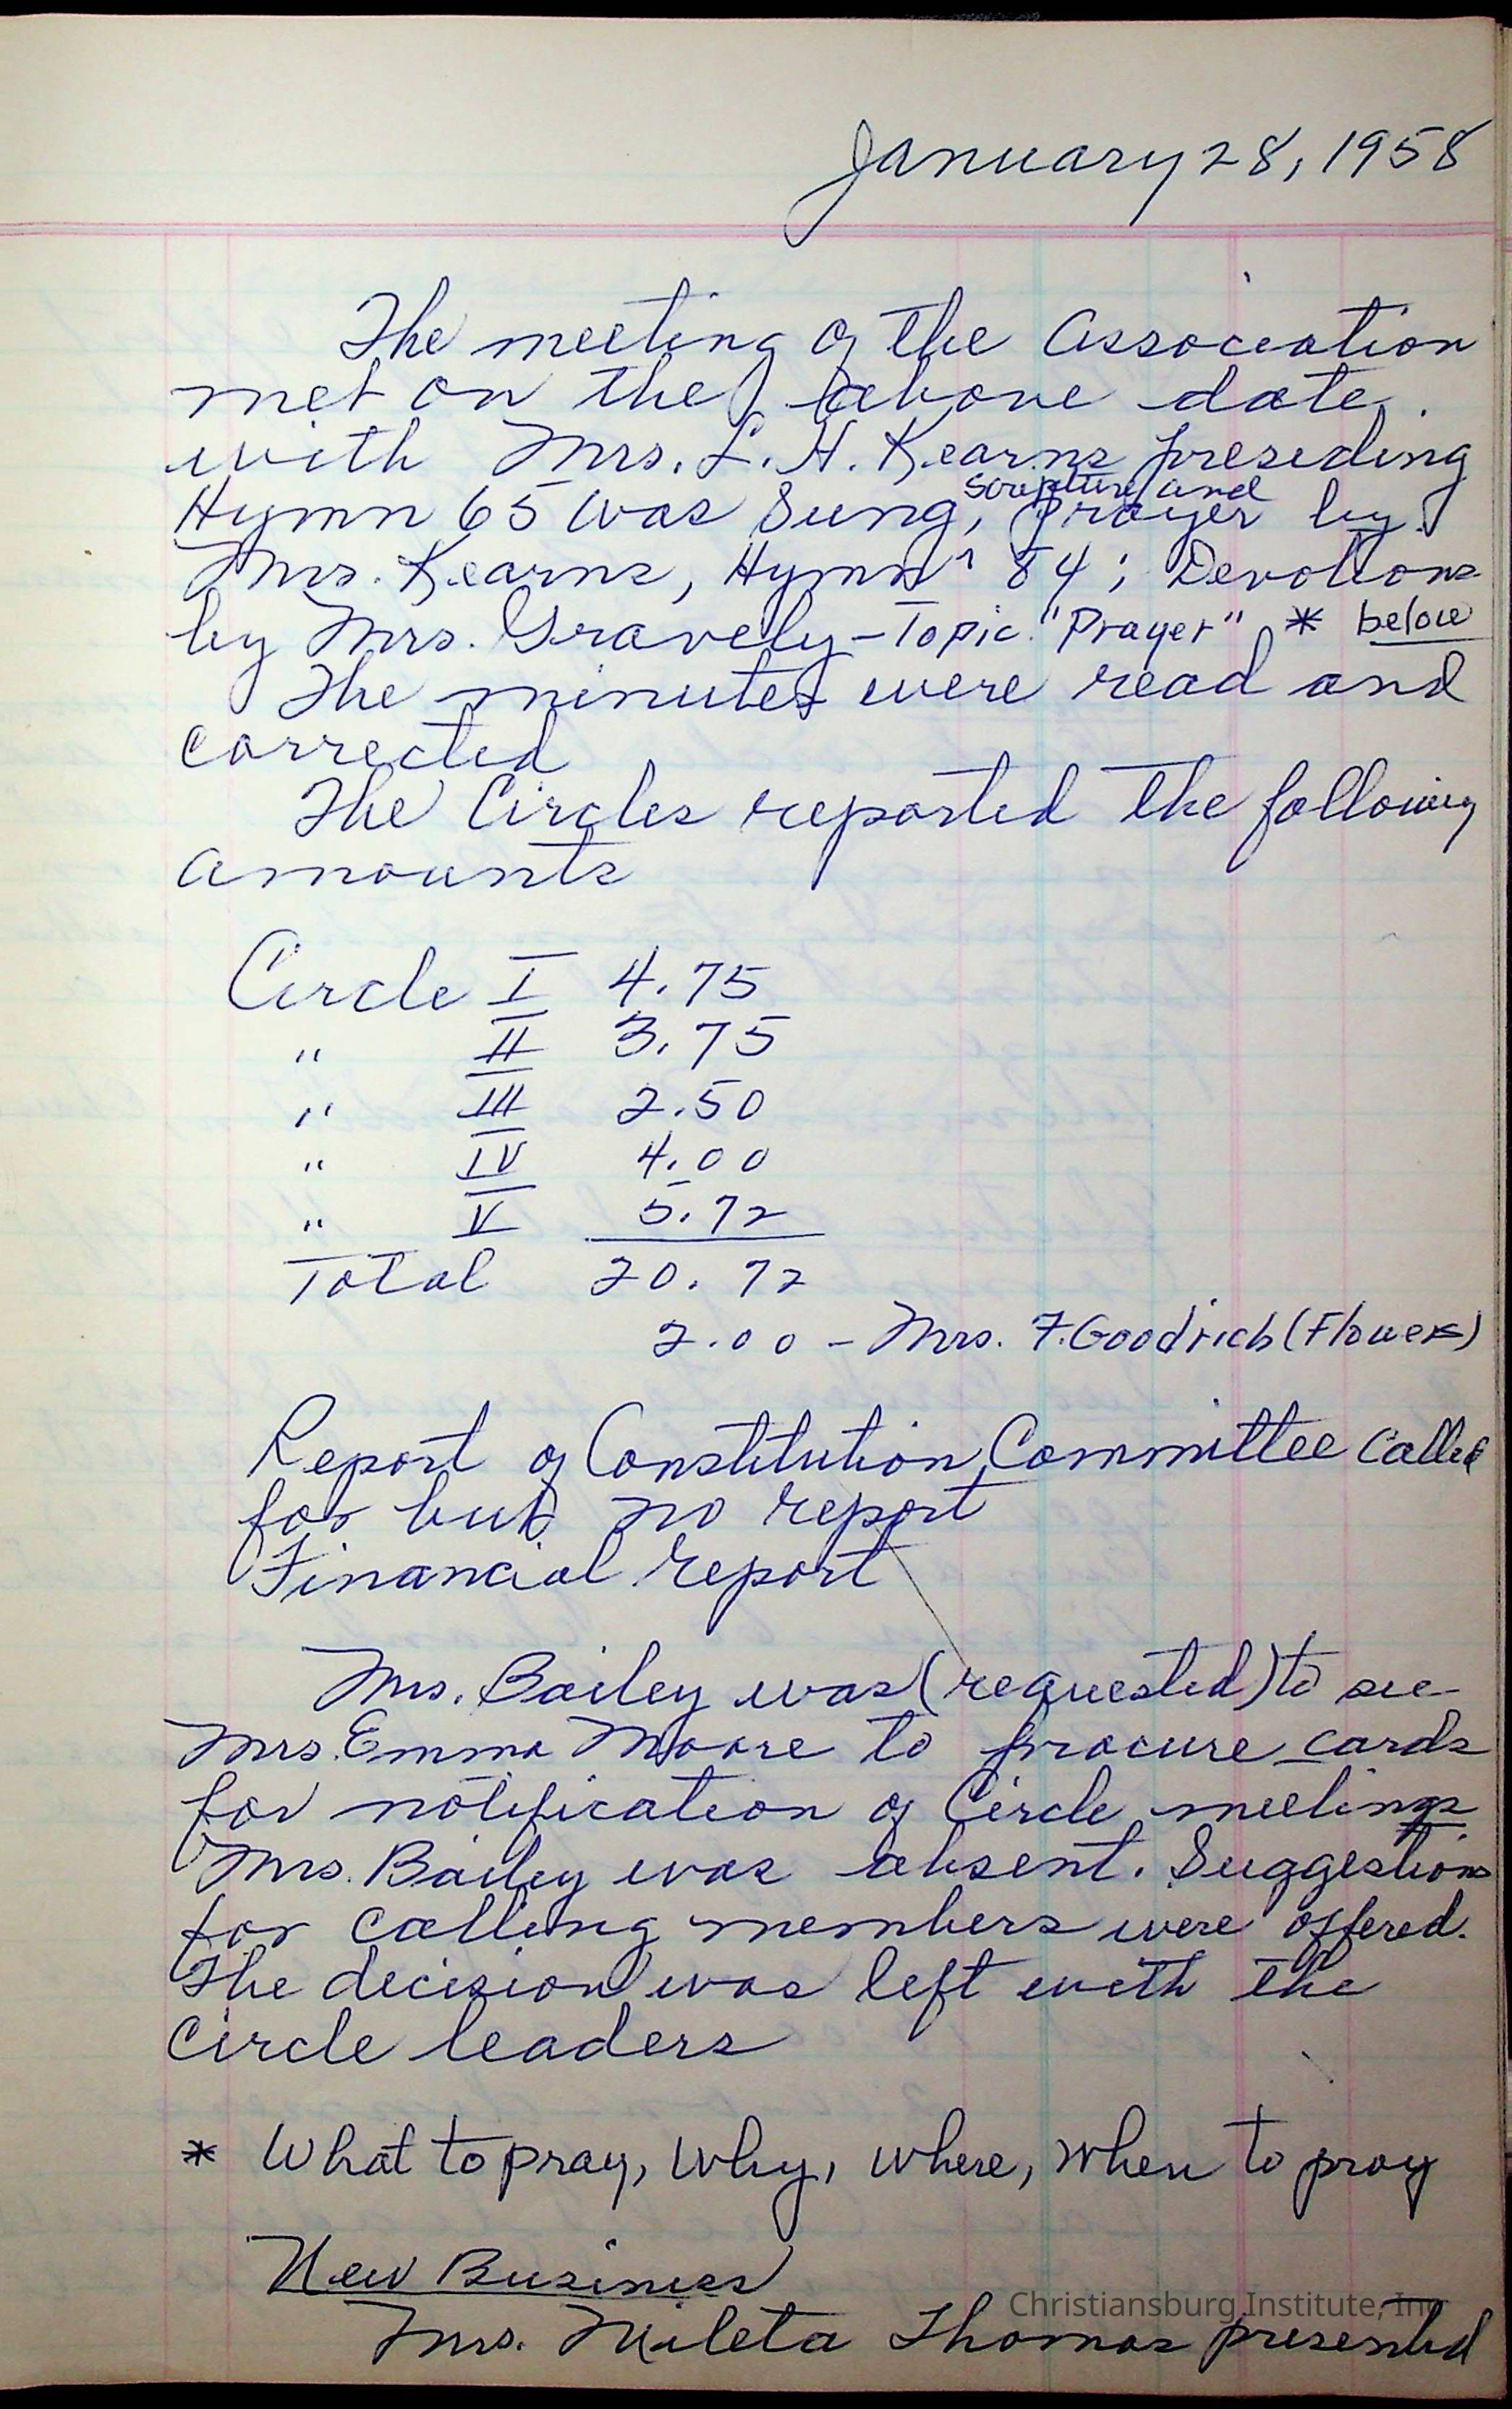 January 28, 1958
The meeting of the Association
met on the above date.
with Mrs. L. H. Kearns presiding
Hymn 65 was Sung, scripture and prayer by
Mrs. Kearns, Hymn 84; Devotions
by Mrs. Gravely - Topic "Prayer" * below
The minutes were read and
corrected
The Circles reported the following
amounts
Circle I 4.75
" II 3.75
" III 2.50
" IV 4.00
" V 5.72
Total 20.72
2.00 - Mrs. F. Goodrich (Flowers)
Report of Constitution Committee called
for but no report
Financial report
Mrs. Bailey was (requested) to see
Mrs. Emma Moore to procure cards
for notification of Circle meetings.
Mrs. Bailey was absent. Suggestions
for calling members were offered.
The decision was left with the
Circle leaders
* What to pray, Why, where, when to pray
New Business
Christiansburg Institute, Inc
Mrs. Mileta Thomas presented